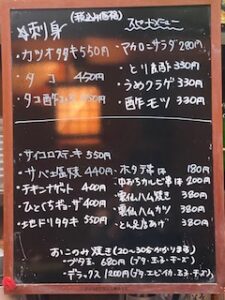 (税込み価格)
刺身
・カツオタタキ 550円
・タコ 450円
・タコ酢
スピードメニュー
・マカロニサラダ 280円
・とり酢 330円
・うめクラゲ 330円
・酢モツ 330円
・サイコロステーキ 550円
・サバ塩焼 440円
・チキンナゲット 400円
・ひとくちギョーザ 400円
・地ドリタタキ 550円
・ホタテ串 180円
・中みちカルビ串 200円
・雲仙ハム焼き 380円
・雲仙ハムカツ 380円
・とん足あげ 380円
おこのみ焼き(20〜30分かかります)
・ブタ玉 680円(ブタ・玉子・チーズ)
・デラックス 1200円(ブタ・エビ・イカ・玉子・チーズ)